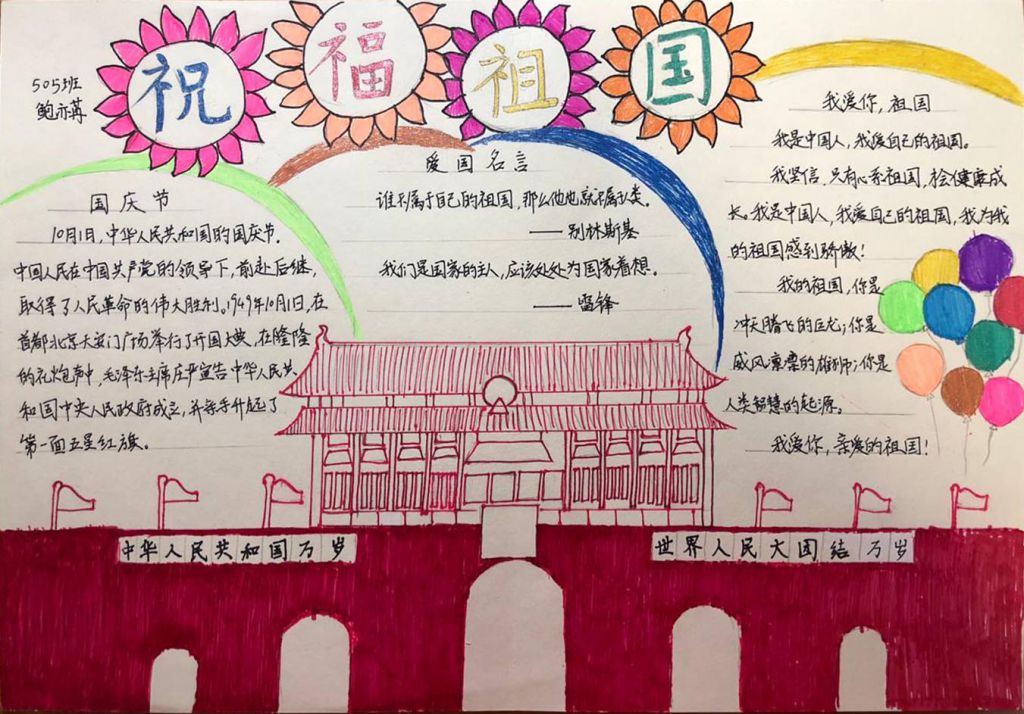 祝福祖国
505班
鲍亦苒
国庆节
10月1日,中华人民共和国的国庆节.
中国人民在中国共产党的领导下,前赴后继,
取得了人民革命的伟大胜利。1949年10月1日,在
首都北京天安门广场举行了开国大典,在隆隆
的礼炮声中,毛泽东主席庄严宣告中华人民共
和国中央人民政府成立,并亲手升起了
第一面五星红旗。
爱国名言
谁不属于自己的祖国,那么他也就不属于人类。
——别林斯基
我们是国家的主人,应该处处为国家着想.
——雷锋
我爱你,祖国
我是中国人,我爱自己的祖国。
我坚信,只有心系祖国,才会健康成
长。我是中国人,我爱自己的祖国,我为我
的祖国感到骄傲!
我的祖国,你是
冲天腾飞的巨龙;你是
威风凛凛的雄狮;你是
人类智慧的起源。
我爱你,亲爱的祖国!
中华人民共和国万岁
世界人民大团结万岁